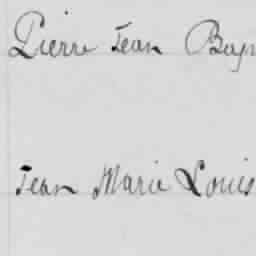 Pierre Jean
Jean Marie Louis